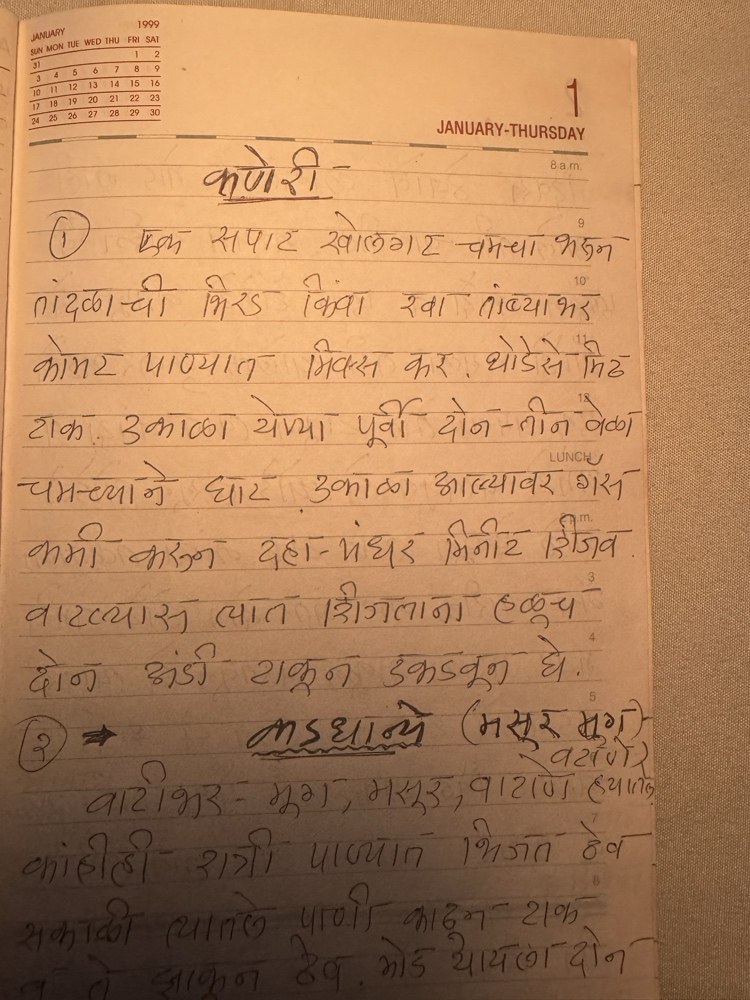 JANUARY 1999
SUN MON TUE WED THU FRI SAT
31 1 2
3 4 5 6 7 8 9
10 11 12 13 14 15 16
17 18 19 20 21 22 23
24 25 26 27 28 29 30
1
JANUARY-THURSDAY
8 a.m.
कणेरी
9
① एक सपाट खोलगट चमचा भरून
10
तांदळाची भिरड किंवा रवा तांब्याभर
11
कोमट पाण्यात मिक्स कर. थोडेसे मिठ
12
टाक. उकाळा येण्या पूर्वी दोन-तीन वेळा
LUNCH
चमच्याने घाट उकाळा आल्यावर गॅस
p.m.
कमी करून दहा-पंधर मिनीट शिजव.
3
वाटल्यास त्यात शिजताना हळूच
4
दोन अंडी टाकून उकडवून घे.
5
② → कडधान्ये (मसूर मूग)
वटाणे
वाटीभर - मूग, मसूर, वाटाणे ह्यातील
7
कांहीही रात्री पाण्यात भिजत ठेव
8
सकाळी त्यातले पाणी काढून टाक
व ते झाकून ठेव. मोड यायला दोन